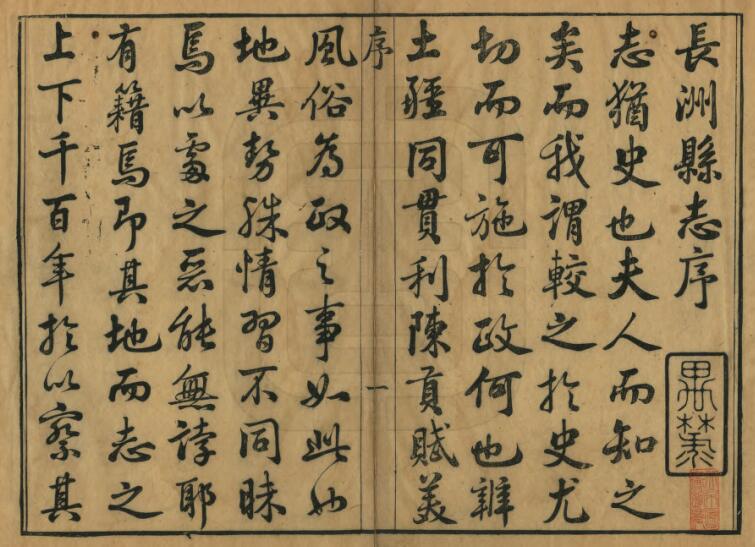 長洲縣志序
志猶史也夫人而知之
矣而我謂較之於史尤
切而可施於政何也辨
土疆同貫利陳貢賦美
序
一
風俗為政之事如此
地異勢殊情習不同昧
焉以處之惡能無誖耶
有籍焉即其地而志之
上下千百年於以察其